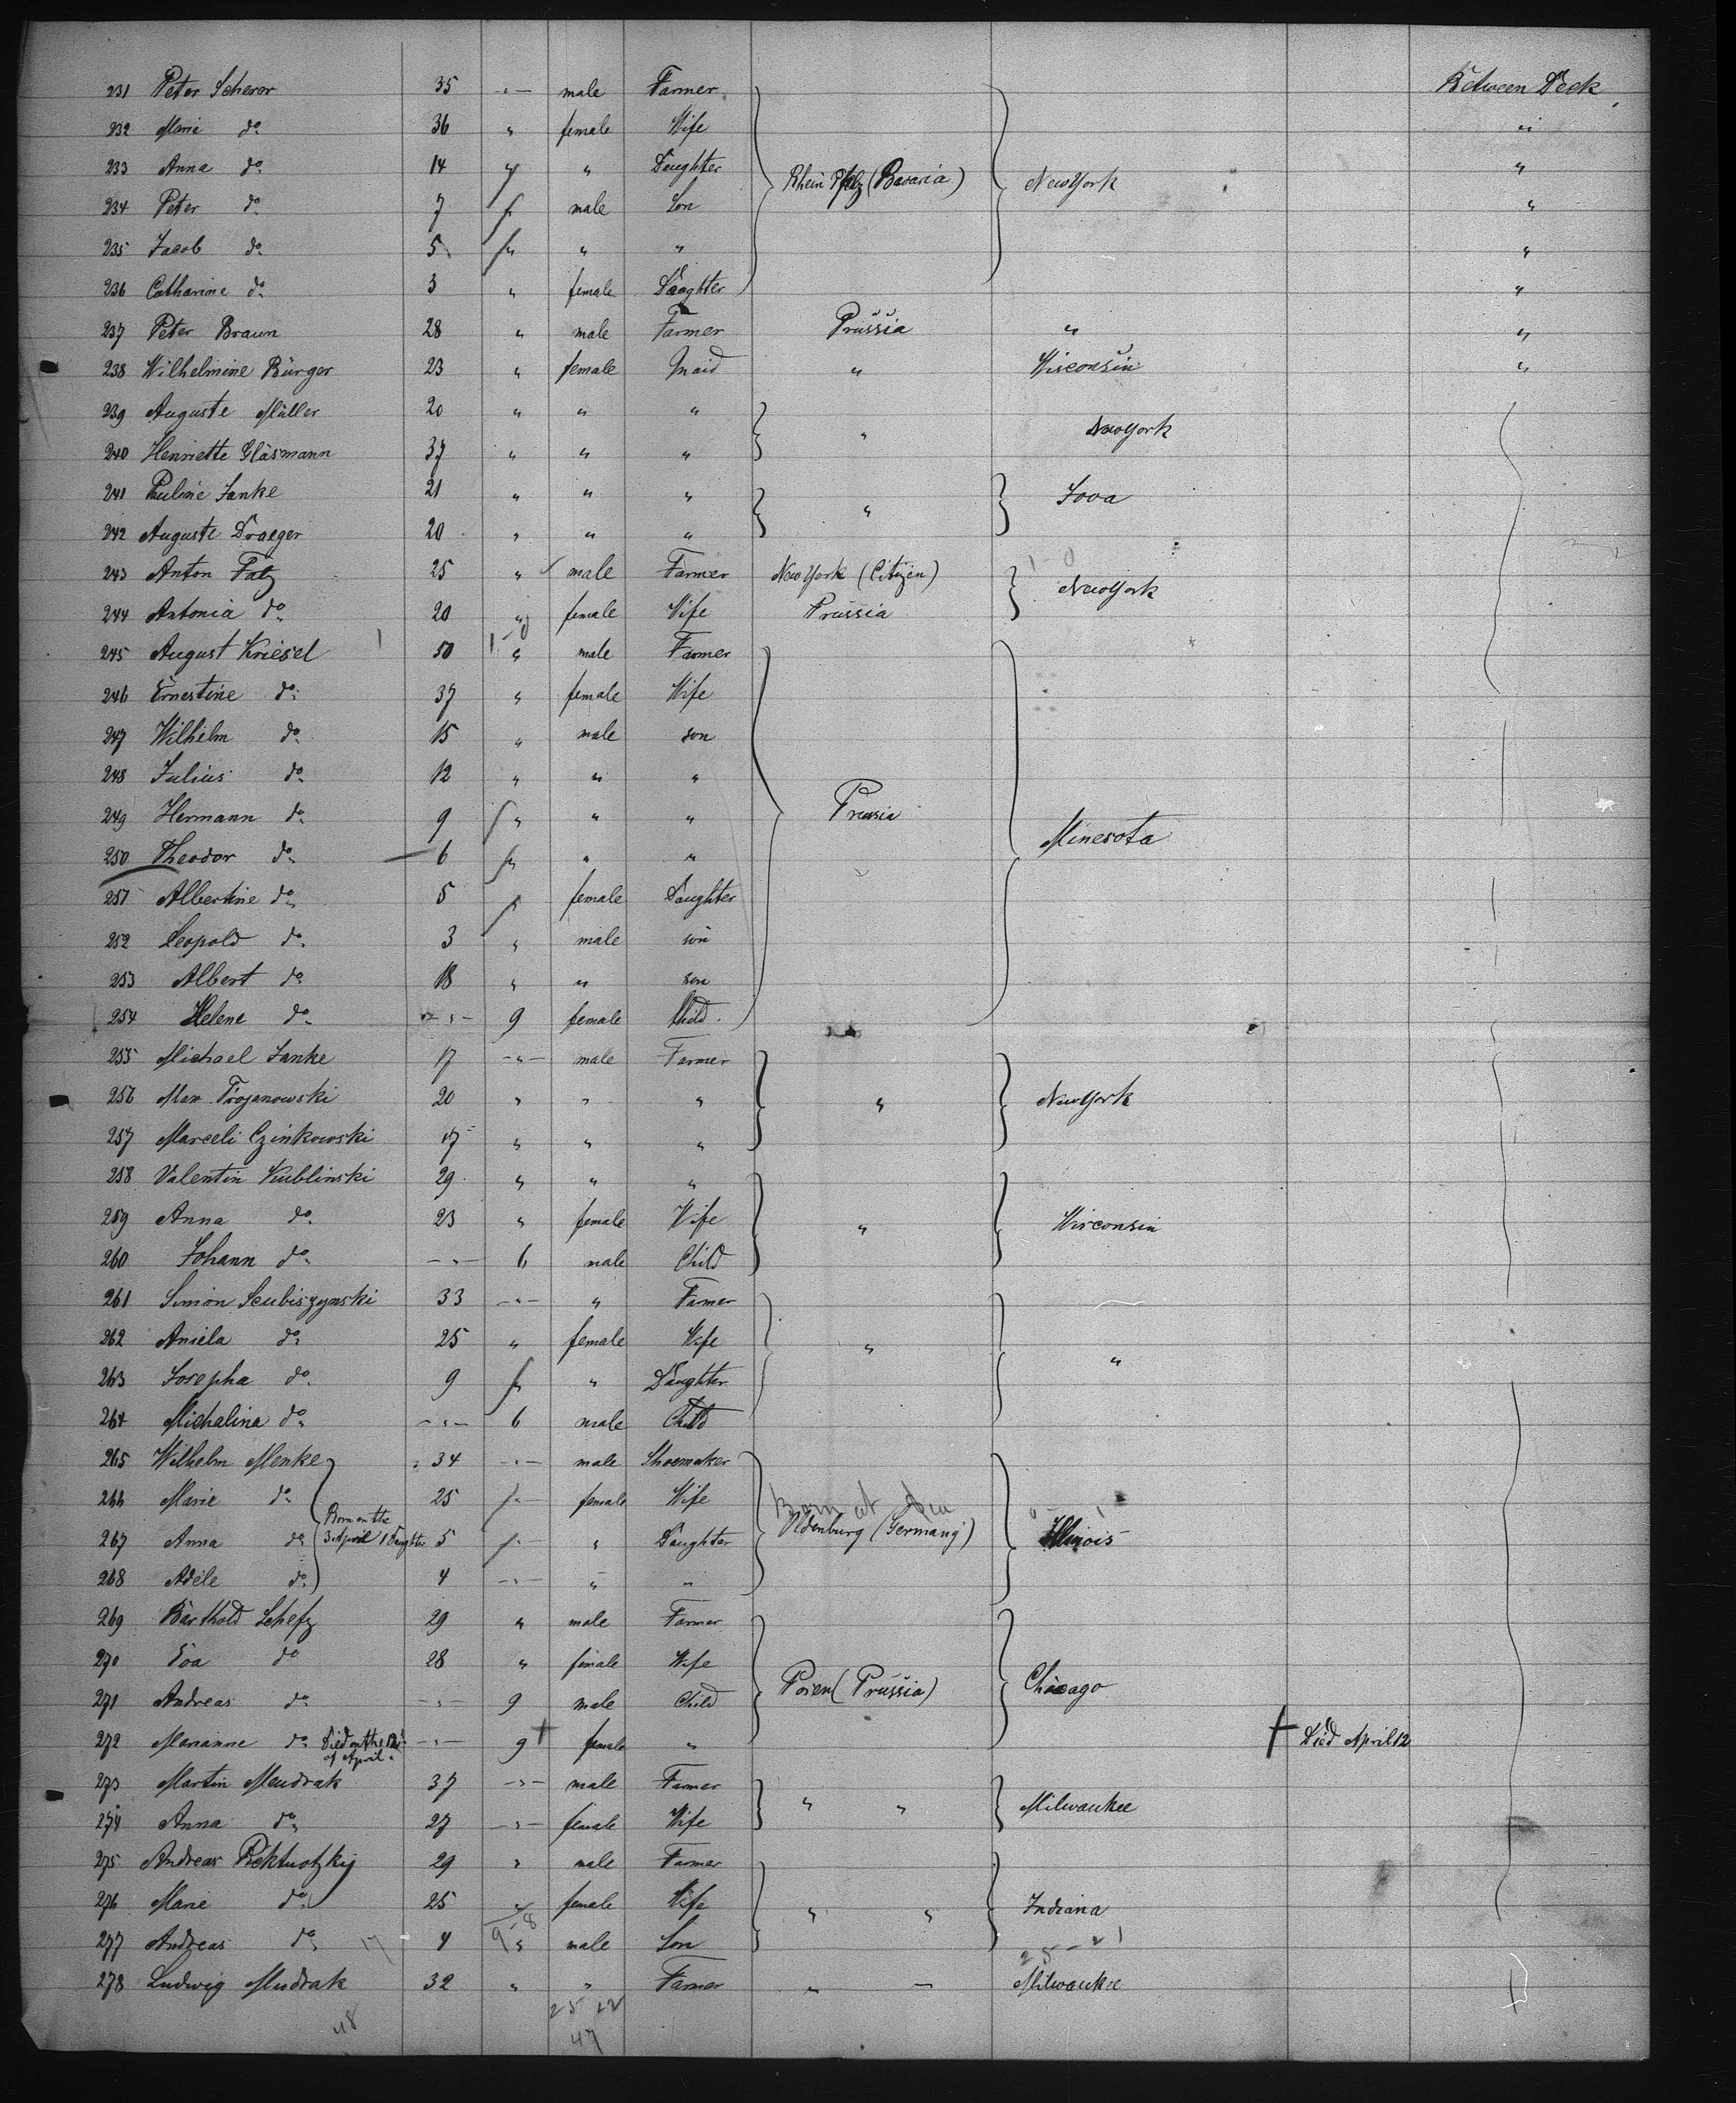 231 Peter Scherer 35 -„- male Farmer Between Deck
232 Marie do 36 „ female Wife „
233 Anna do 14 „ „ Daughter Rhein Pfalz (Bavaria) New York „
234 Peter do 7 male Son „
235 Jacob do 5 „ „ „ „
236 Catharine do 3 „ female Daughter „
237 Peter Braun 28 „ male Farmer Prussia „ „
238 Wilhelmine Bürger 23 „ female Maid „ Wisconsin „
239 Auguste Müller 20 „ „ „
240 Henriette Gläsmann 37 „ „ „ „ New York
241 Pauline Janke 21 „ „ „ Iova
242 Auguste Draeger 20 „ „ „ „
243 Anton Falz 25 „ male Farmer New York (Citizen) New York
244 Antonia do 20 „ female Wife Prussia
245 August Kriesel 50 „ male Farmer
246 Ernestine do 37 „ female Wife
247 Wilhelm do 15 „ male son
248 Julius do 12 „ „ „
249 Hermann do 9 „ „ „ Prussia
250 Theodor do 6 „ „ „ Minesota
251 Albertine do 5 female Daughter
252 Leopold do 3 „ male son
253 Albert do 18 „ „ son
254 Helene do -„- 9 female Child
255 Michael Janke 17 -„- male Farmer
256 Max Trojanowski 20 „ „ „ „ New York
257 Marceli Czinkowski 17 „ „ „
258 Valentin Kublinski 29 „ „ „
259 Anna do 23 „ female Wife „ Wisconsin
260 Johann do -„- 6 male Child
261 Simon Scubiszynski 33 -„- „ Farmer
262 Aniela do 25 „ female Wife „ „
263 Josepha do 9 „ „ Daughter
264 Michalina do -„- 6 male Child
265 Wilhelm Menke 34 -„- male Shoemaker
266 Marie do 25 „ female Wife Born at Sea
Born on the
267 Anna do 3 April 1 Daughter 5 „ „ Daughter Oldenburg (Germany) Illinois
268 Adele do 4 -„- „ „
269 Barthold Schefz 29 „ male Farmer
270 Eva do 28 „ female Wife
271 Andreas do -„- 9 male Child Posen (Prussia) Chicago
272 Marianne do Died on the 12 of April -„- 9 + female „ + Died April 12
273 Martin Meudrak 37 -„- male Farmer
274 Anna do 27 -„- female Wife „ „ Milwaukee
275 Andreas 29 „ male Farmer
276 Marie do 25 „ female Wife „ „ Indiana
277 Andreas do 17 4 9-8 „ male Son 25-21
278 Ludwig Mudrak 32 „ „ Farmer „ – Milwaukee
25 22
48 47